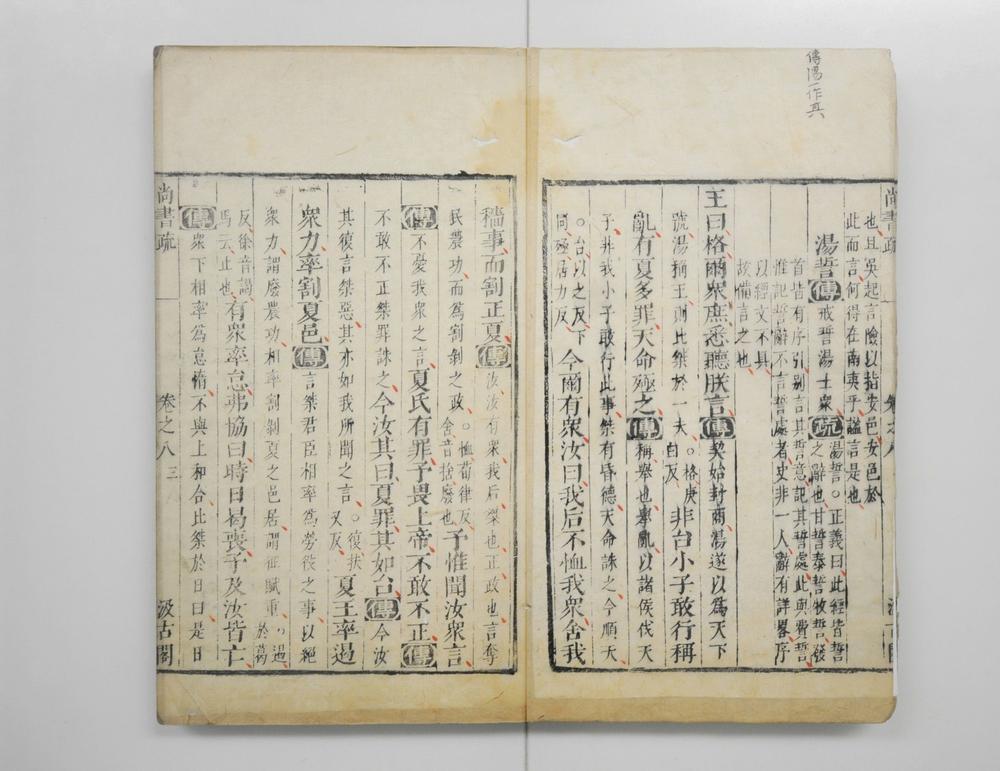 傳湯一作其
尚書疏
也且吳起言險以指安邑安邑於
此而言何得在南夷乎謚言是也
湯誓傳戒誓湯士衆疏湯誓○正義曰此經皆誓
之辭也甘誓泰誓牧誓發
首皆有序引别言其誓意記其誓處此與費誓
惟記誓辭不言誓處者史非一人辭有詳畧序
以經文不具
故備言之也
王曰格爾衆庶悉聽朕言傳契始封商湯遂以爲天下
號湯稱王則比桀於一夫○格庚
白反非台小子敢行稱
亂有夏多罪天命殛之傳稱舉也舉亂以諸侯伐天
子非我小子敢行此事桀有昏德天命誅之今順天
○台以之反下
同殛居力反今爾有衆汝曰我后不恤我衆舍我
穡事而割正夏傳汝汝有衆我后桀也正政也言奪
民農功而爲割剝之政○恤荀律反
舍音捨廢也予惟聞汝衆言
傳不憂我衆之言夏氏有罪予畏上帝不敢不正傳
不敢不正桀罪誅之今汝其曰夏罪其如台傳今汝
其復言桀惡其亦如我所聞之言○復扶
又反夏王率遏
衆力率割夏邑傳言桀君臣相率爲勞役之事以絕
衆力謂廢農功相率割剝夏之邑居謂征賦重○遏
於葛
反徐音謁
馬云止也有衆率怠弗協曰時日曷喪予及汝皆亡
傳衆下相率爲怠惰不與上和合比桀於日曰是日
尚書疏
卷之八
三
汲古閣